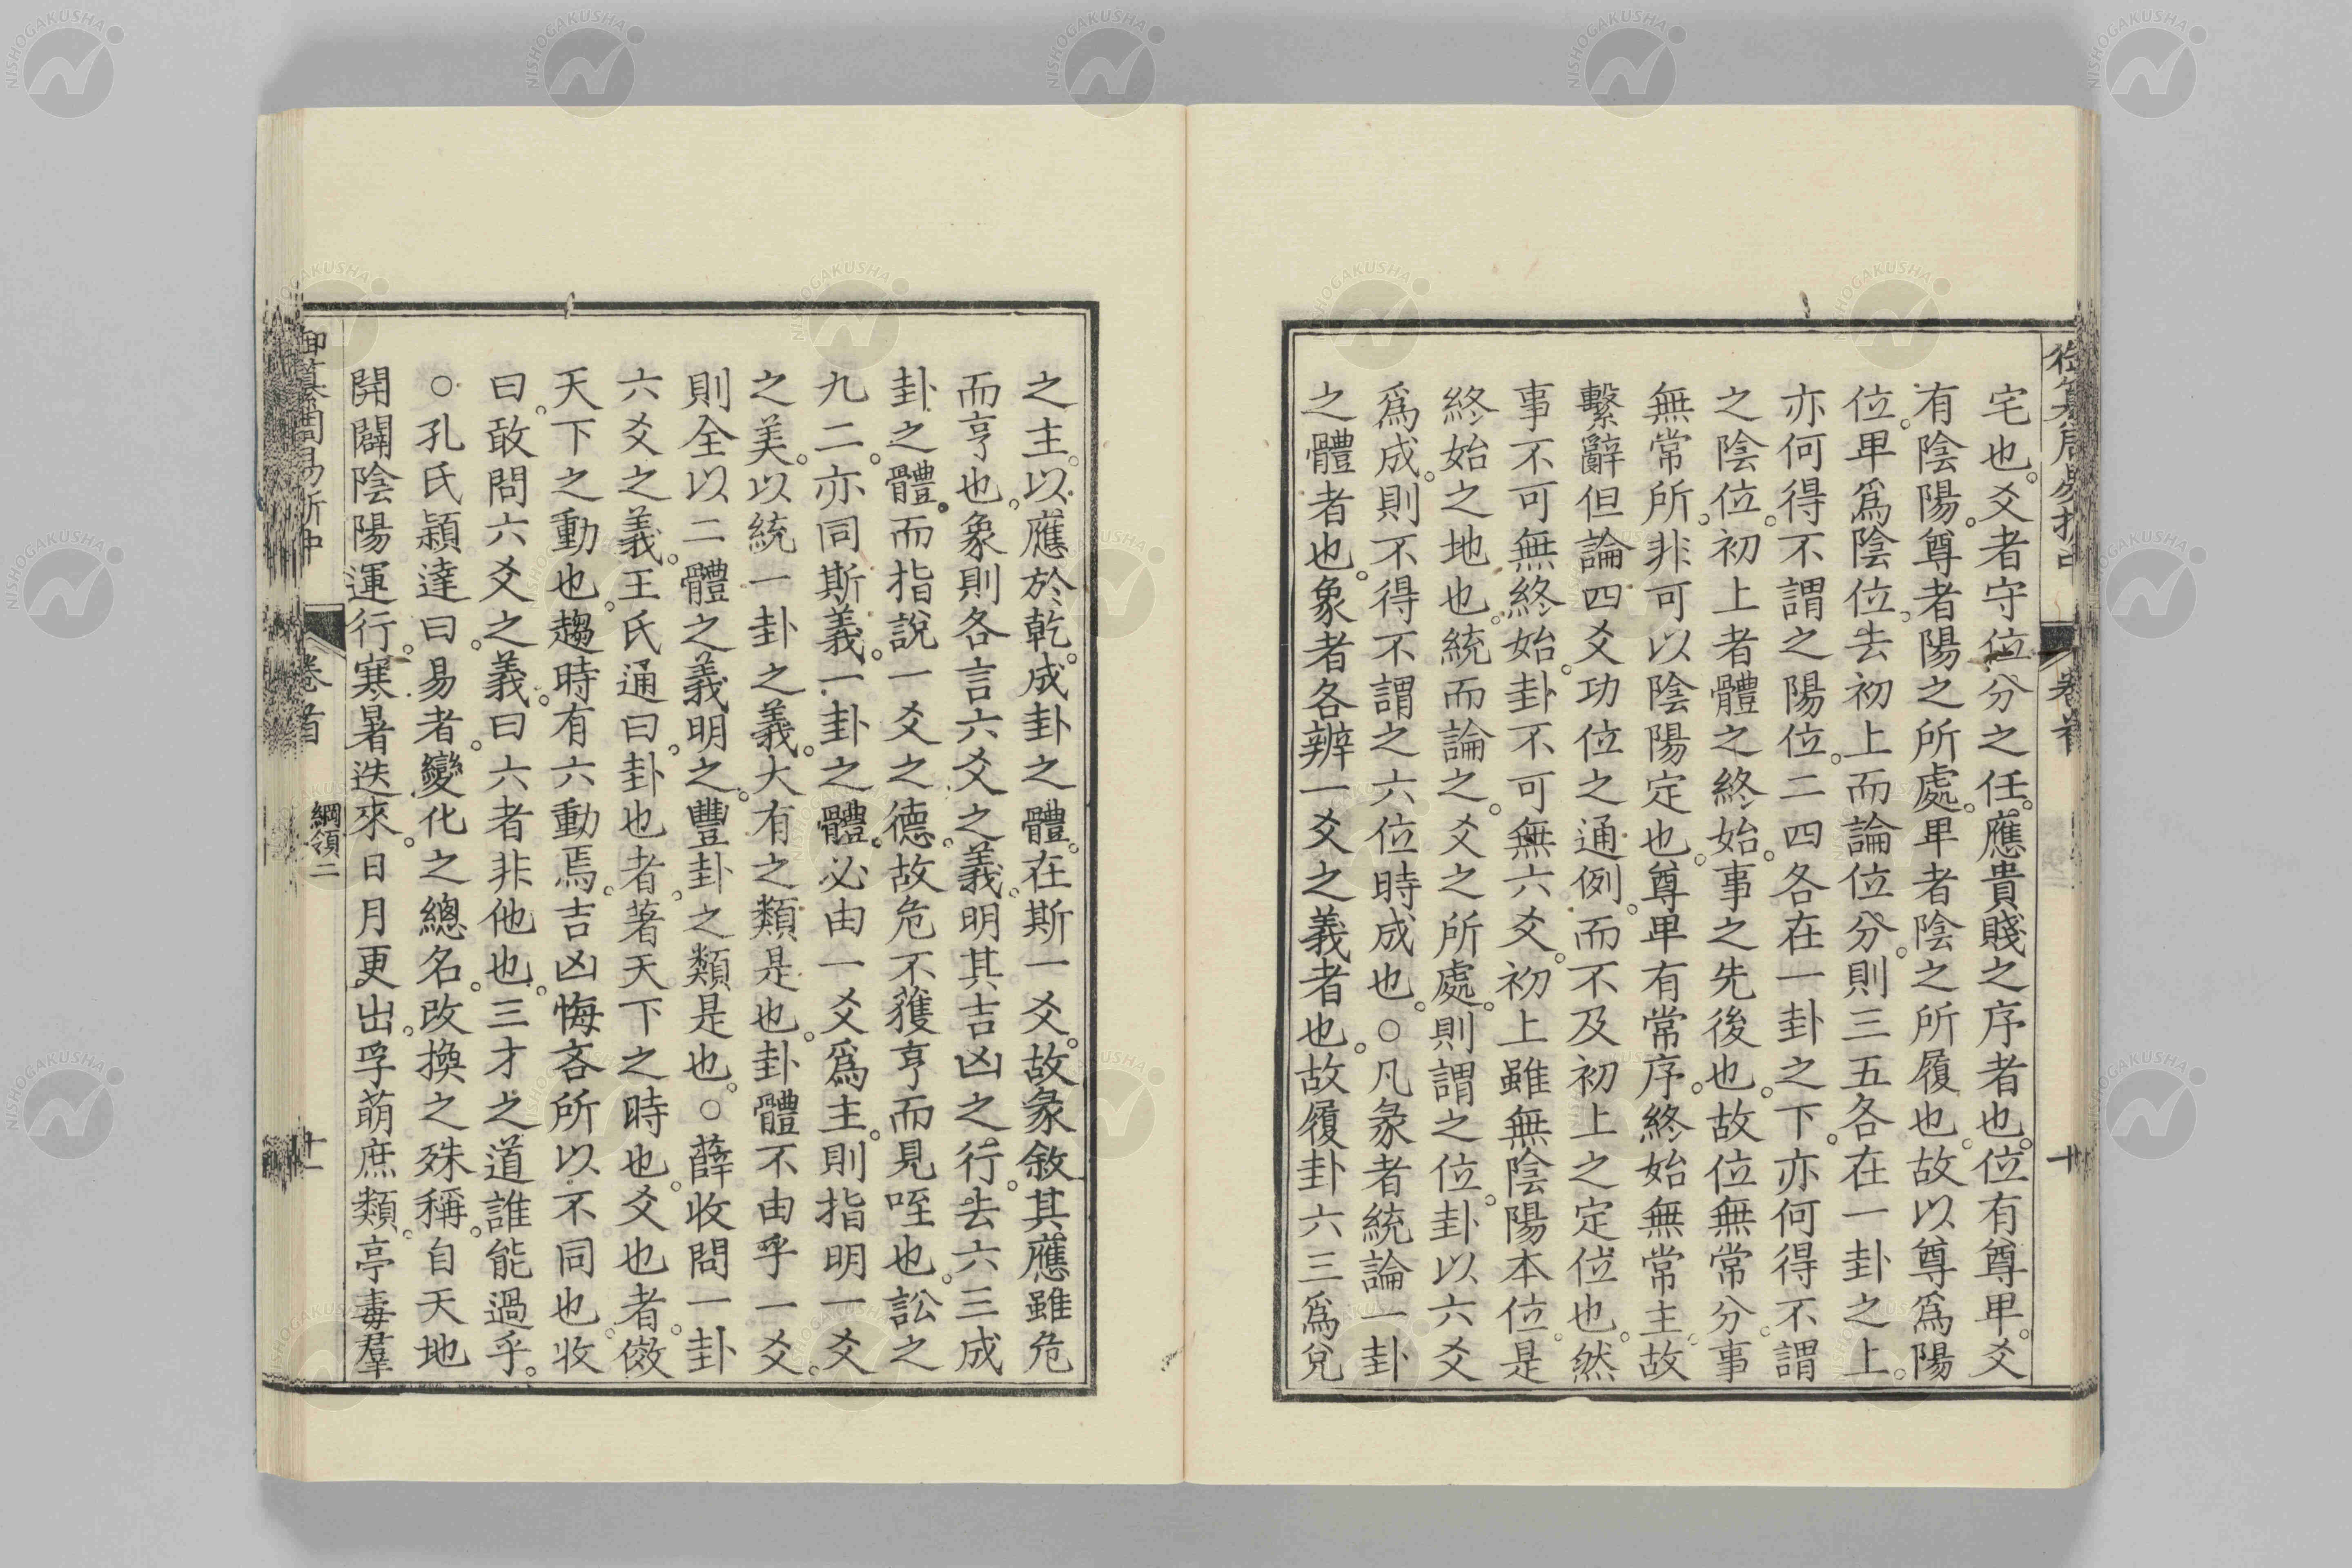 宅也。爻者守位分之任。應貴賤之序者也。位有尊卑。爻
有陰陽。尊者陽之所處。卑者陰之所履也。故以尊爲陽
位。卑爲陰位。去初上而論位分。則三五各在一卦之上。
亦何得不謂之陽位。二四各在一卦之下。亦何得不謂
之陰位。初上者體之終始。事之先後也。故位無常分。事
無常所。非可以陰陽定也。尊卑有常序。終始無常主。故
繫辭但論四爻功位之通例。而不及初上之定位也。然
事不可無終始。卦不可無六爻。初上雖無陰陽本位。是
終始之地也。統而論之。爻之所處。則謂之位。卦以六爻
爲成。則不得不謂之六位時成也。○凡彖者統論一卦
之體者也。象者各辨一爻之義者也。故履卦六三爲兌
之主。以應於乾。成卦之體。在斯一爻。故彖敘其應雖危
而亨也。象則各言六爻之義。明其吉凶之行。去六三成
卦之體。而指說一爻之德。故危不獲亨而見咥也。訟之
九二。亦同斯義。一卦之體。必由一爻爲主。則指明一爻
之美。以統一卦之義。大有之類是也。卦體不由乎一爻。
則全以二體之義明之。豐卦之類是也。○薛收問一卦
六爻之義。王氏通曰。卦也者。著天下之時也。爻也者。傚
天下之動也。趨時有六動焉。吉凶悔吝所以不同也。收
曰。敢問六爻之義。曰。六者非他也。三才之道。誰能過乎。
○孔氏穎達曰。易者。變化之總名。改換之殊稱。自天地
開闢。陰陽運行。寒暑迭來。日月更出。孚萌庶類。亭毒羣
御纂周易折中 卷首 綱領二 十一